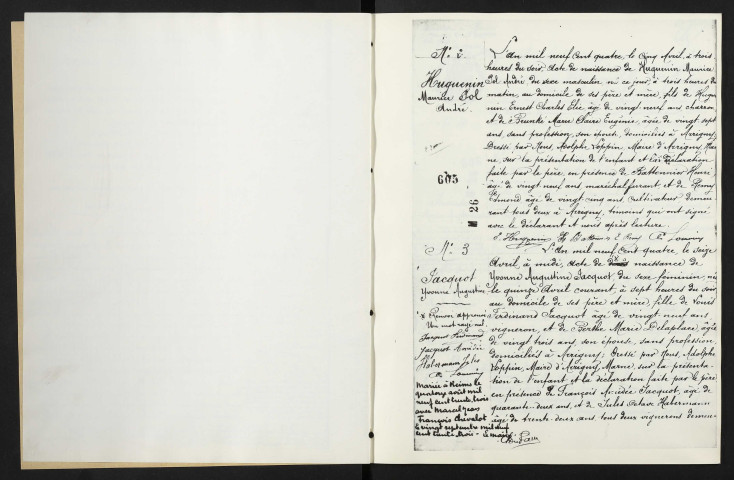 N° 2.
Huguenin
Maurice Pol
André.
605
M 26
L'An mil neuf cent quatre, le cinq Avril, à trois
heures du soir, Acte de naissance de Huguenin Maurice
Pol André, du sexe masculin né ce jour, à trois heures du
matin, au domicile de ses père et mère, fils de Hugue
nin Ernest Charles Elie âgé de vingt neuf ans charron
et de Marie Claire Eugénie, âgée de vingt sept
ans, sans profession, son épouse, domiciliés à
Dressé par Nous, Adolphe Loppin Maire d' Mar
ne, sur la présentation de l'enfant et la déclaration
faite par le père, en présence de Henri
âgé de vingt neuf ans maréchal ferrant, et de Remy
Edmond âgé de vingt cinq ans cultivateur demeu
rant tous deux à témoins qui ont signé
avec le déclarant et nous après lecture.
N° 3
Jacquot
Yvonne Augustine
Renvoi approuvé
Un mot rayé nul.
Jacquot Ferdinand
Jacquot
Habermann Jules
Mariée à Reims le
quatorze août mil
neuf cent trente trois
avec Marcel Jean
François Chevalot
le vingt septembre mil neuf
cent trente trois - Le maire
L'An mil neuf cent quatre le seize
Avril, à midi, Acte de naissance de
Yvonne Augustine Jacquot, du sexe féminin, née
le quinze Avril courant, à sept heures du soir
au domicile de ses père et mère, fille de Louis
Ferdinand Jacquot âgé de vingt neuf ans,
vigneron, et de Berthe Marie Delaplace, âgée
de vingt trois ans son épouse, sans profession,
domiciliés à Dressé par Nous, Adolphe
Loppin, Maire d' Marne, sur la présenta-
tion de l'enfant et la déclaration faite par le père
en présence de François Jacquot, âgé de
quarante-deux ans, et de Jules Octave Habermann
âgé de trente-deux ans, tous deux vignerons demeu-